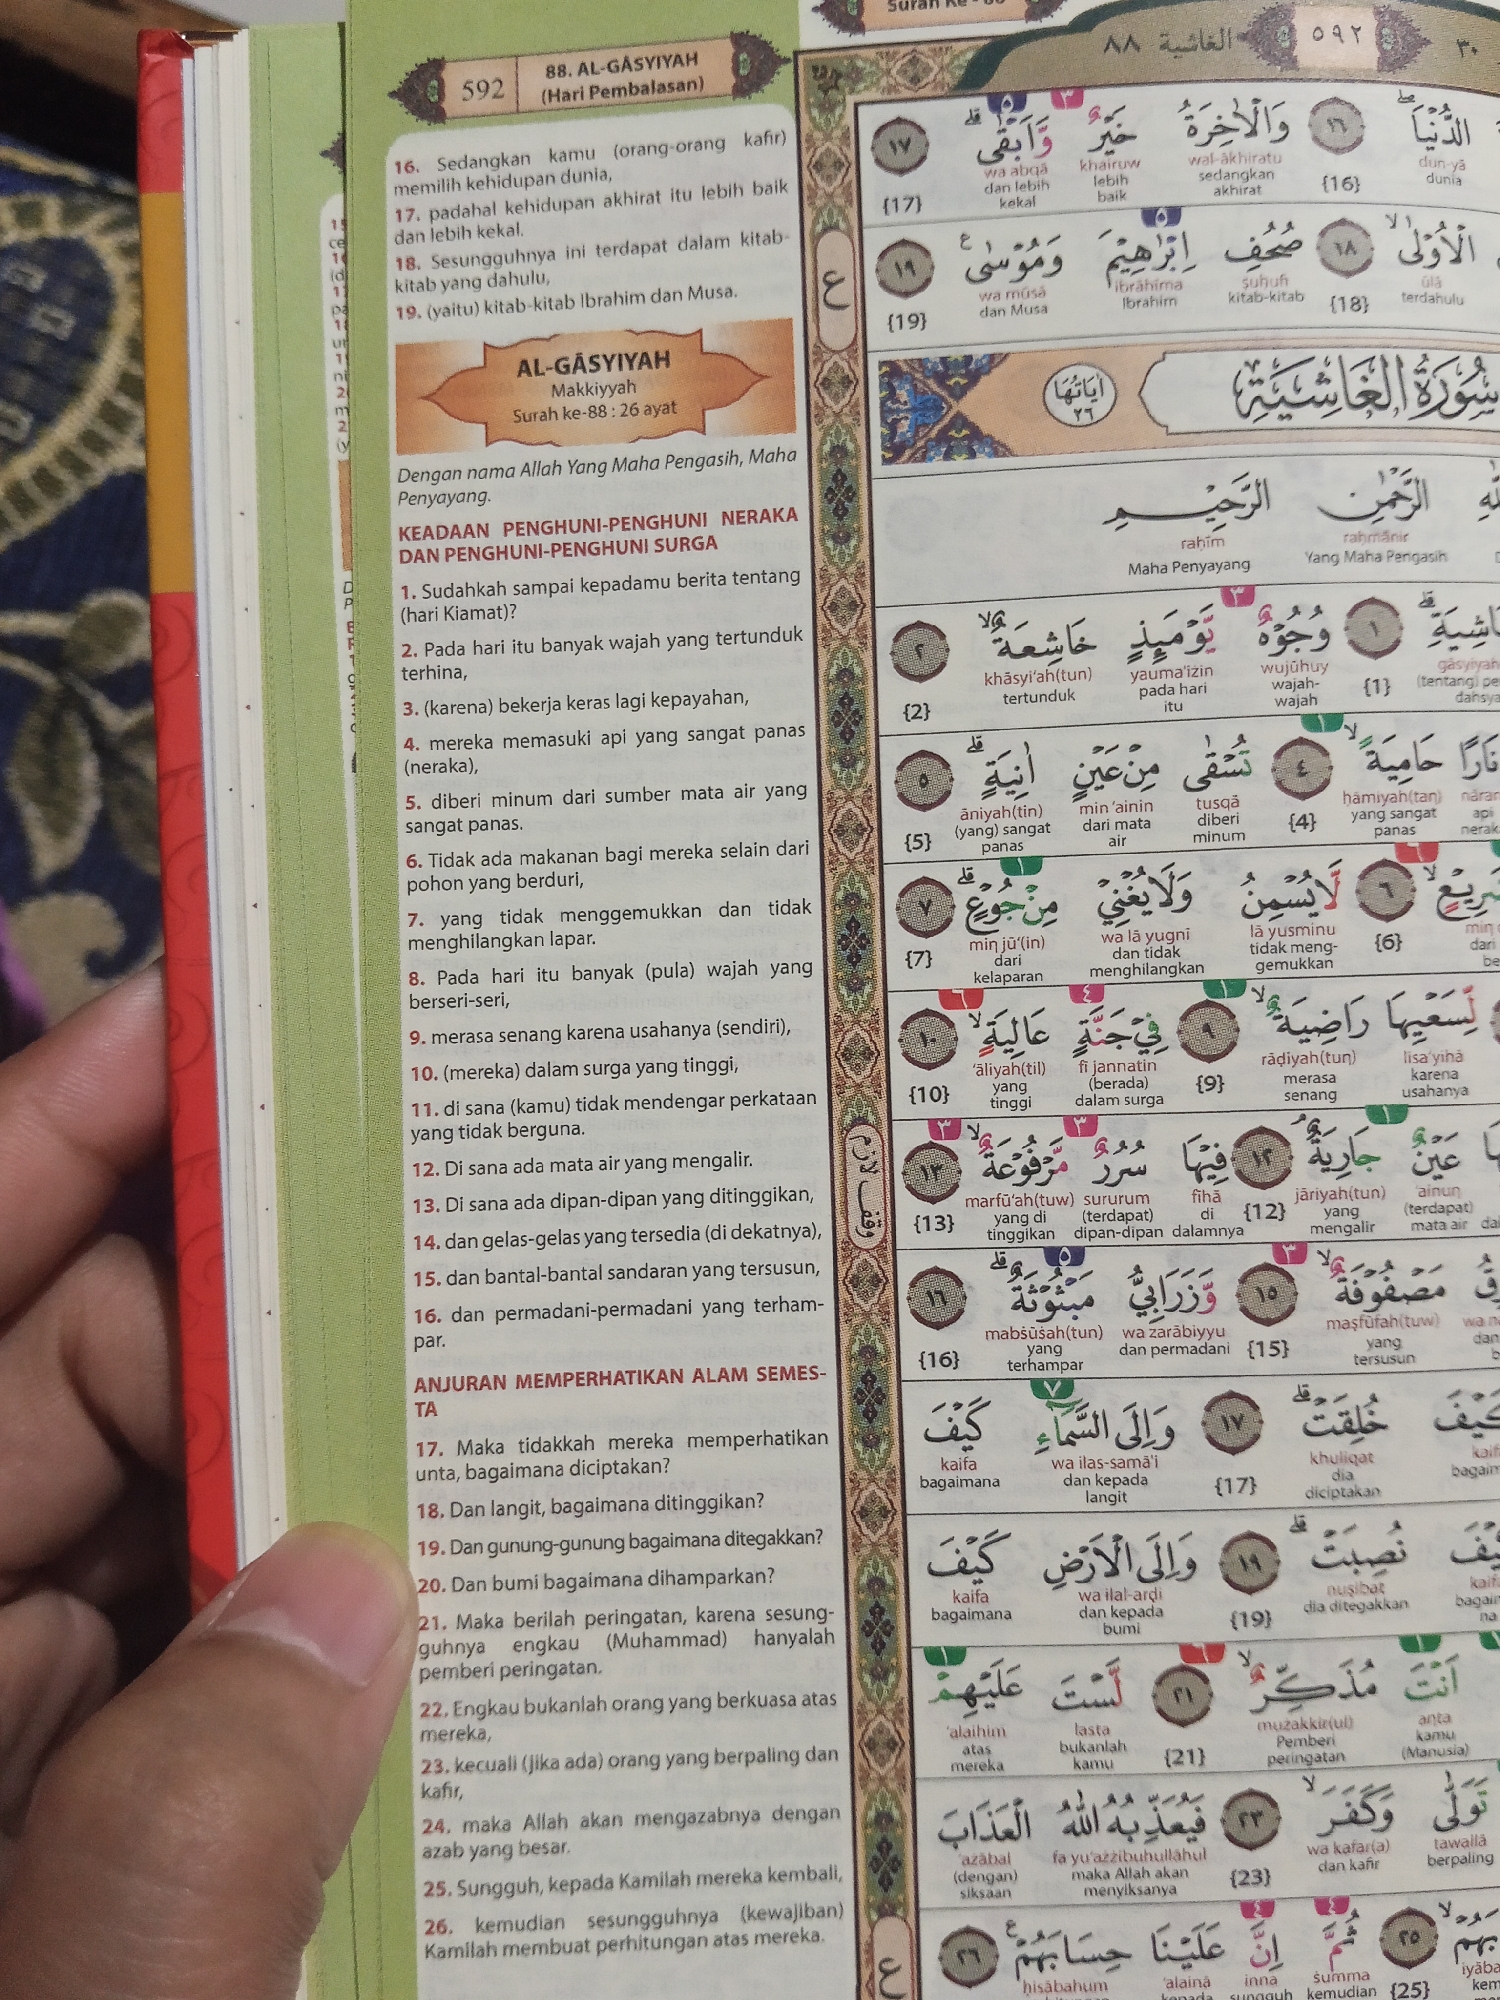 592
88. AL-GĀSYIYAH
(Hari Pembalasan)
16. Sedangkan kamu (orang-orang kafir)
memilih kehidupan dunia,
17. padahal kehidupan akhirat itu lebih baik
dan lebih kekal.
18. Sesungguhnya ini terdapat dalam kitab-
kitab yang dahulu,
19. (yaitu) kitab-kitab Ibrahim dan Musa.
AL-GĀSYIYAH
Makkiyyah
Surah ke-88 : 26 ayat
Dengan nama Allah Yang Maha Pengasih, Maha
Penyayang.
KEADAAN PENGHUNI-PENGHUNI NERAKA
DAN PENGHUNI-PENGHUNI SURGA
1. Sudahkah sampai kepadamu berita tentang
(hari Kiamat)?
2. Pada hari itu banyak wajah yang tertunduk
terhina,
3. (karena) bekerja keras lagi kepayahan,
4. mereka memasuki api yang sangat panas
(neraka),
5. diberi minum dari sumber mata air yang
sangat panas.
6. Tidak ada makanan bagi mereka selain dari
pohon yang berduri,
7. yang tidak menggemukkan dan tidak
menghilangkan lapar.
8. Pada hari itu banyak (pula) wajah yang
berseri-seri,
9. merasa senang karena usahanya (sendiri),
10. (mereka) dalam surga yang tinggi,
11. di sana (kamu) tidak mendengar perkataan
yang tidak berguna.
12. Di sana ada mata air yang mengalir.
13. Di sana ada dipan-dipan yang ditinggikan,
14. dan gelas-gelas yang tersedia (di dekatnya),
15. dan bantal-bantal sandaran yang tersusun,
16. dan permadani-permadani yang terham-
par.
ANJURAN MEMPERHATIKAN ALAM SEMES-
TA
17. Maka tidakkah mereka memperhatikan
unta, bagaimana diciptakan?
18. Dan langit, bagaimana ditinggikan?
19. Dan gunung-gunung bagaimana ditegakkan?
20. Dan bumi bagaimana dihamparkan?
21. Maka berilah peringatan, karena sesung-
guhnya engkau (Muhammad) hanyalah
pemberi peringatan.
22. Engkau bukanlah orang yang berkuasa atas
mereka,
23. kecuali (jika ada) orang yang berpaling dan
kafir,
24. maka Allah akan mengazabnya dengan
azab yang besar.
25. Sungguh, kepada Kamilah mereka kembali,
26. kemudian sesungguhnya (kewajiban)
Kamilah membuat perhitungan atas mereka.
٣٠ ٥٩٢ الغاشية ٨٨
الدُّنْيَا ١٦ وَالْاٰخِرَةُ خَيْرٌ وَّاَبْقٰى ١٧
dun-yā {16} wal-ākhiratu khairuw wa abqā {17}
dunia sedangkan akhirat lebih baik dan lebih kekal
الْاُوْلٰى ١٨ صُحُفِ اِبْرٰهِيْمَ وَمُوْسٰى ١٩
ūlā {18} ṣuḥufi ibrāhīma wa mūsā {19}
terdahulu kitab-kitab Ibrahim dan Musa
سُوْرَةُ الْغَاشِيَةِ اٰيَاتُهَا ٢٦
الرَّحْمٰنِ الرَّحِيْمِ
raḥmānir raḥīm
Yang Maha Pengasih Maha Penyayang
١ وُجُوْهٌ يَّوْمَىِٕذٍ خَاشِعَةٌ ٢
gāsyiyah {1} wujūhuy yauma'iżin khāsyi'ah(tun) {2}
(tentang) wajah-wajah pada hari itu tertunduk
نَارًا حَامِيَةً ٤ تُسْقٰى مِنْ عَيْنٍ اٰنِيَةٍ ٥
nāran ḥāmiyah(tan) {4} tusqā min 'ainin āniyah(tin) {5}
api yang sangat panas diberi minum dari mata air (yang) sangat panas
٦ لَا يُسْمِنُ وَلَا يُغْنِيْ مِنْ جُوْعٍ ٧
{6} lā yusminu wa lā yugnī min jū'(in) {7}
tidak meng-gemukkan dan tidak menghilangkan dari kelaparan
لِسَعْيِهَا رَاضِيَةٌ ٩ فِيْ جَنَّةٍ عَالِيَةٍ ١٠
lisa'yihā rāḍiyah(tun) {9} fī jannatin 'āliyah(til) {10}
karena usahanya merasa senang (berada) dalam surga yang tinggi
عَيْنٌ جَارِيَةٌ ١٢ فِيْهَا سُرُرٌ مَّرْفُوْعَةٌ ١٣
'ainun jāriyah(tun) {12} fīhā sururum marfū'ah(tuw) {13}
(terdapat) mata air yang mengalir di dalamnya (terdapat) dipan-dipan yang di tinggikan
مَصْفُوْفَةٌ ١٥ وَّزَرَابِيُّ مَبْثُوْثَةٌ ١٦
maṣfūfah(tuw) {15} wa zarābiyyu mabṡūṡah(tun) {16}
yang tersusun dan permadani yang terhampar
كَيْفَ خُلِقَتْ ١٧ وَاِلَى السَّمَاۤءِ كَيْفَ
khuliqat {17} wa ilas-samā'i kaifa
dia diciptakan dan kepada langit bagaimana
كَيْفَ نُصِبَتْ ١٩ وَاِلَى الْاَرْضِ كَيْفَ
nuṣibat {19} wa ilal-arḍi kaifa
dia ditegakkan dan kepada bumi bagaimana
اَنْتَ مُذَكِّرٌ ٢١ لَسْتَ عَلَيْهِمْ
anta mużakkir(ul) {21} lasta 'alaihim
kamu (Manusia) Pemberi peringatan bukanlah kamu atas mereka
تَوَلّٰى وَكَفَرَ ٢٣ فَيُعَذِّبُهُ اللّٰهُ الْعَذَابَ
tawallā wa kafar(a) {23} fa yu'ażżibuhullāhul 'ażābal
berpaling dan kafir maka Allah akan menyiksanya (dengan) siksaan
٢٥ ثُمَّ اِنَّ عَلَيْنَا حِسَابَهُمْ ٢٦
{25} ṡumma inna 'alainā ḥisābahum
kemudian sungguh